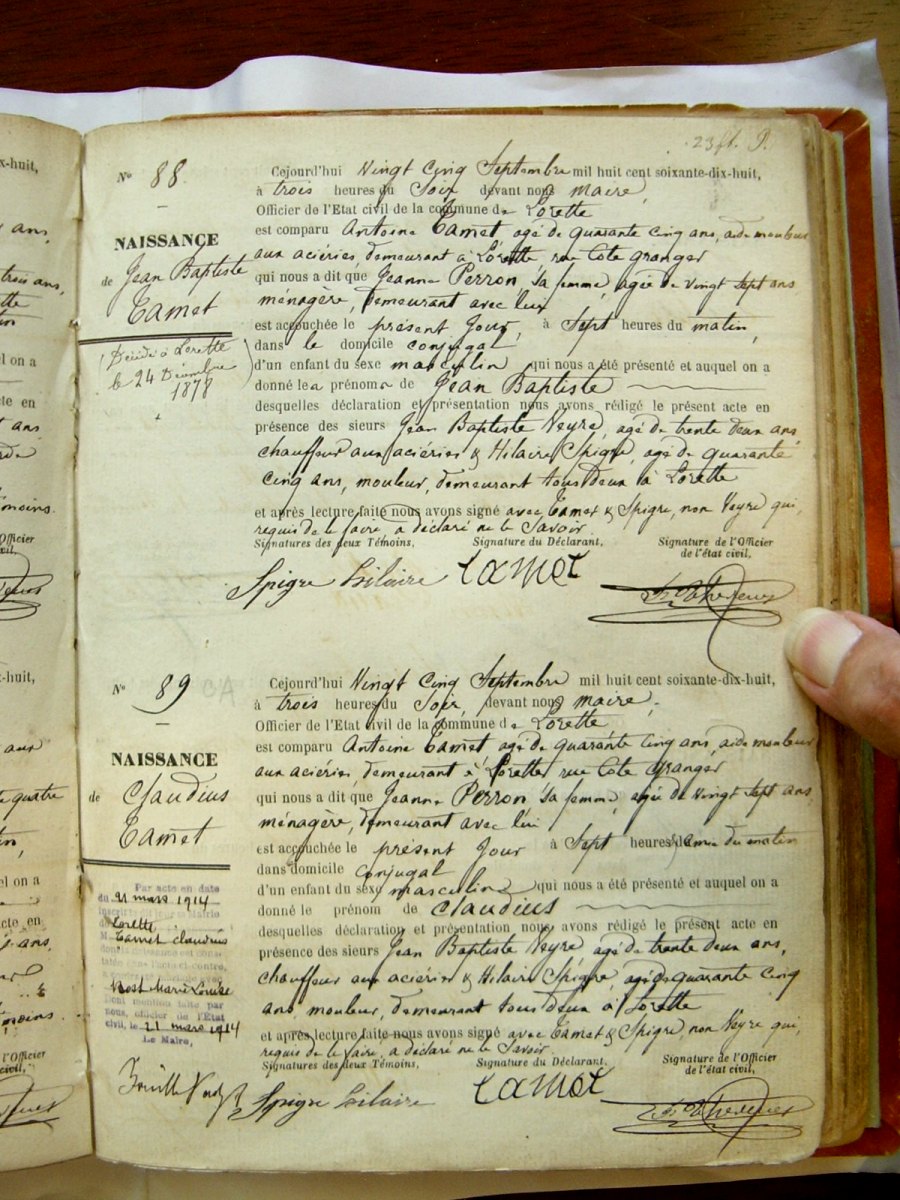 23 ft. P.
N° 88
NAISSANCE
de Jean Baptiste
Tamet
Décédé à Lorette
le 24 Décembre
1878
Cejourd'hui Vingt Cinq Septembre mil huit cent soixante-dix-huit,
à trois heures du Soir devant nous maire,
Officier de l'Etat civil de la commune de Lorette
est comparu Antoine Tamet agé de quarante cinq ans, aide mouleur
aux aciéries, demeurant à Lorette rue Côte granger
qui nous a dit que Jeanne Perron, sa femme, agée de vingt sept ans
ménagère, demeurant avec lui
est accouchée le présent Jour, à Sept heures du matin,
dans le domicile conjugal
d'un enfant du sexe masculin qui nous a été présenté et auquel on a
donné les prénoms de Jean Baptiste
desquelles déclaration et présentation nous avons rédigé le présent acte en
présence des sieurs Jean Baptiste Neyre, agé de trente deux ans
chauffeur aux aciéries & Hilaire Spigre, agé de quarante
cinq ans, mouleur, demeurant tous deux à Lorette
et après lecture faite nous avons signé avec Tamet & Spigre, non Neyre qui,
requis de le faire, a déclaré ne le Savoir
Signatures des deux Témoins, Signature du Déclarant, Signature de l'Officier
de l'état civil,
Spigre hilaire Tamet
N° 89
NAISSANCE
de Claudius
Tamet
Par acte en date
du 21 mars 1914
Lorette
Tamet Claudius
Dont mention faite par
nous, officier de l'Etat
civil, le 21 mars 1914
Le Maire,
Cejourd'hui Vingt Cinq Septembre mil huit cent soixante-dix-huit,
à trois heures du Soir, devant nous maire,
Officier de l'Etat civil de la commune de Lorette
est comparu Antoine Tamet agé de quarante cinq ans, aide mouleur
aux aciéries, demeurant à Lorette rue Côte granger
qui nous a dit que Jeanne Perron, sa femme, agée de vingt sept ans
ménagère, demeurant avec lui
est accouchée le présent Jour à Sept heures & demie du matin
dans domicile conjugal
d'un enfant du sexe masculin qui nous a été présenté et auquel on a
donné le prénom de Claudius
desquelles déclaration et présentation nous avons rédigé le présent acte en
présence des sieurs Jean Baptiste Neyre agé de trente deux ans,
chauffeur aux aciéries & Hilaire Spigre, agé de quarante cinq
ans, mouleur, demeurant tous deux à Lorette
et après lecture faite nous avons signé avec Tamet & Spigre, non Neyre qui,
requis de le faire, a déclaré ne le Savoir
Signatures des deux Témoins, Signature du Déclarant, Signature de l'Officier
de l'état civil,
Spigre hilaire Tamet